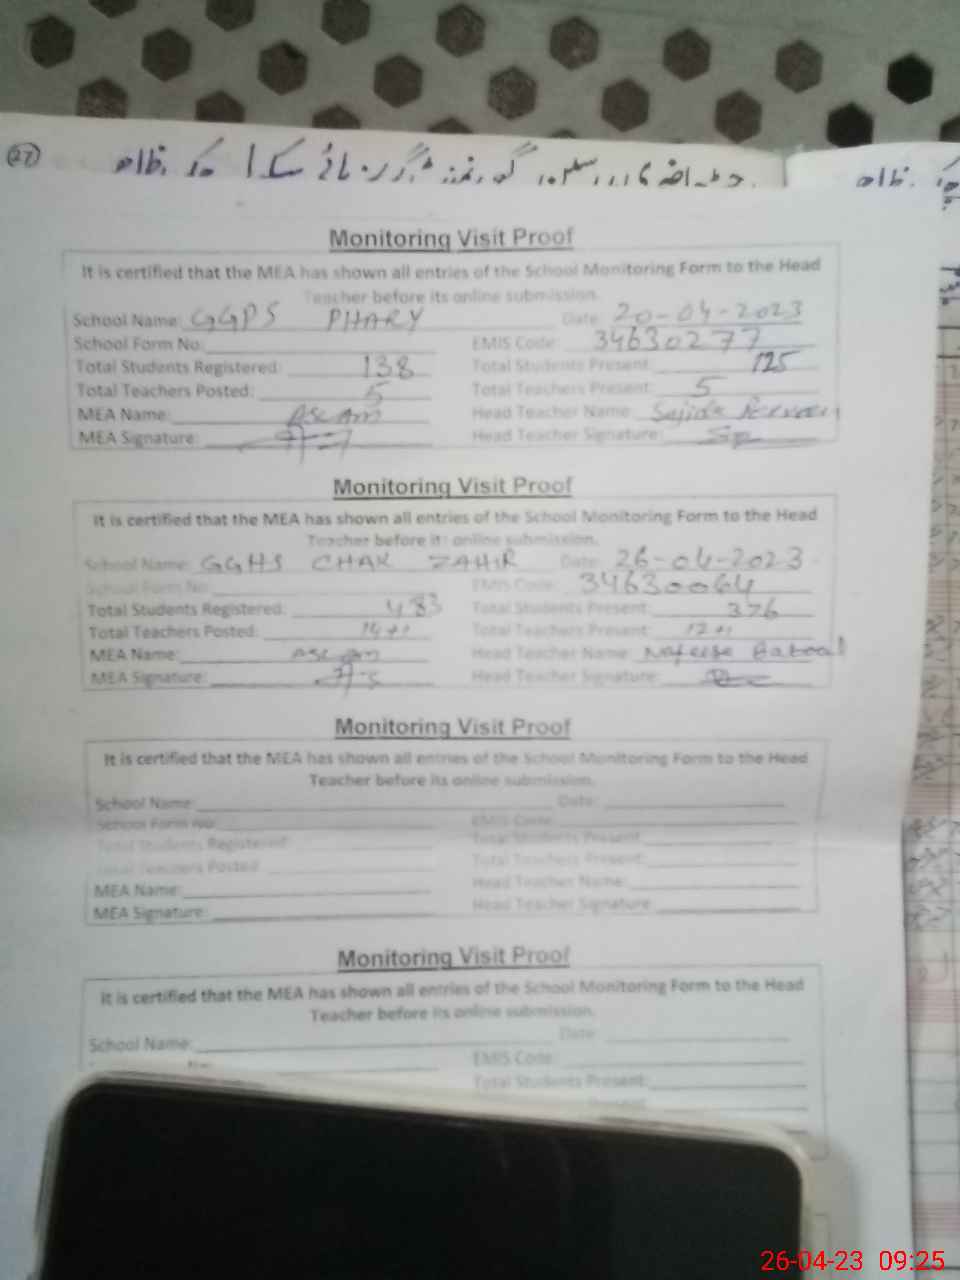 (27)
Monitoring Visit Proof
It is certified that the MEA has shown all entries of the School Monitoring Form to the Head
Teacher before its online submission.
School Name: GGPS PHARY Date: 20-04-2023
School Form No: EMIS Code: 34630277
Total Students Registered: 138 Total Students Present: 125
Total Teachers Posted: 5 Total Teachers Present: 5
MEA Name: ASLAM Head Teacher Name: Sajida
MEA Signature: Head Teacher Signature:
Monitoring Visit Proof
It is certified that the MEA has shown all entries of the School Monitoring Form to the Head
Teacher before its online submission.
School Name: GGHS CHAK ZAHIR Date: 26-04-2023
School Form No: EMIS Code: 34630064
Total Students Registered: 483 Total Students Present: 376
Total Teachers Posted: 14+1 Total Teachers Present: 12+1
MEA Name: ASLAM Head Teacher Name: Nafeesa Batool
MEA Signature: Head Teacher Signature:
Monitoring Visit Proof
It is certified that the MEA has shown all entries of the School Monitoring Form to the Head
Teacher before its online submission.
School Name: Date:
School Form No: EMIS Code:
Total Students Registered: Total Students Present:
Total Teachers Posted: Total Teachers Present:
MEA Name: Head Teacher Name:
MEA Signature: Head Teacher Signature:
Monitoring Visit Proof
It is certified that the MEA has shown all entries of the School Monitoring Form to the Head
Teacher before its online submission.
School Name: Date:
EMIS Code:
Total Students Present:
26-04-23 09:25